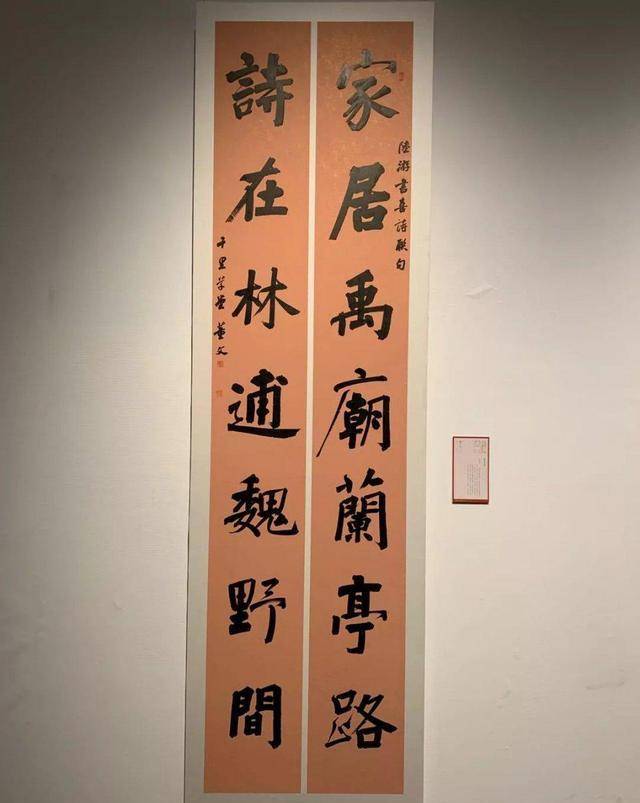 家居禹廟蘭亭路
陸游書喜詩聯句
詩在林逋魏野間
千里草堂 董文